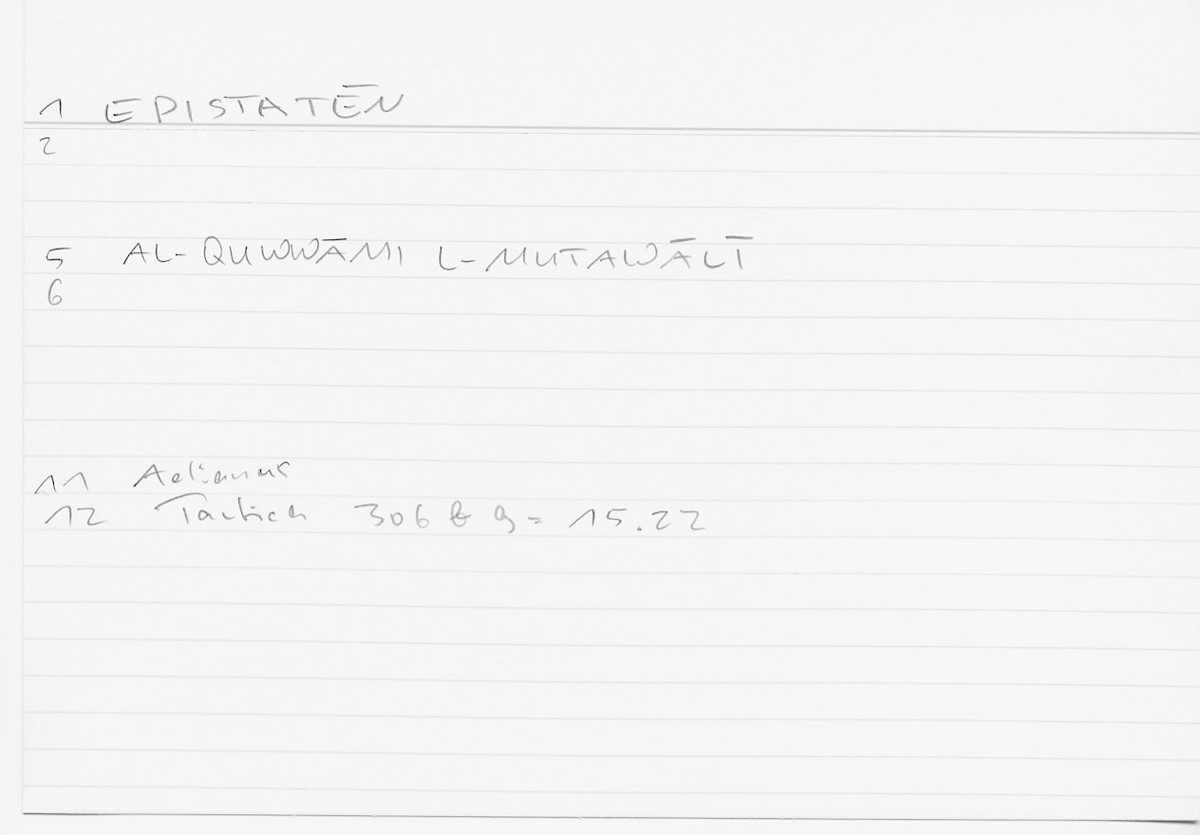 1 EPISTATĒN
2
5 AL-QUWWĀMI L-MUTAWĀLĪ
6
11 Aelianus
12 306 b 9 = 15.22